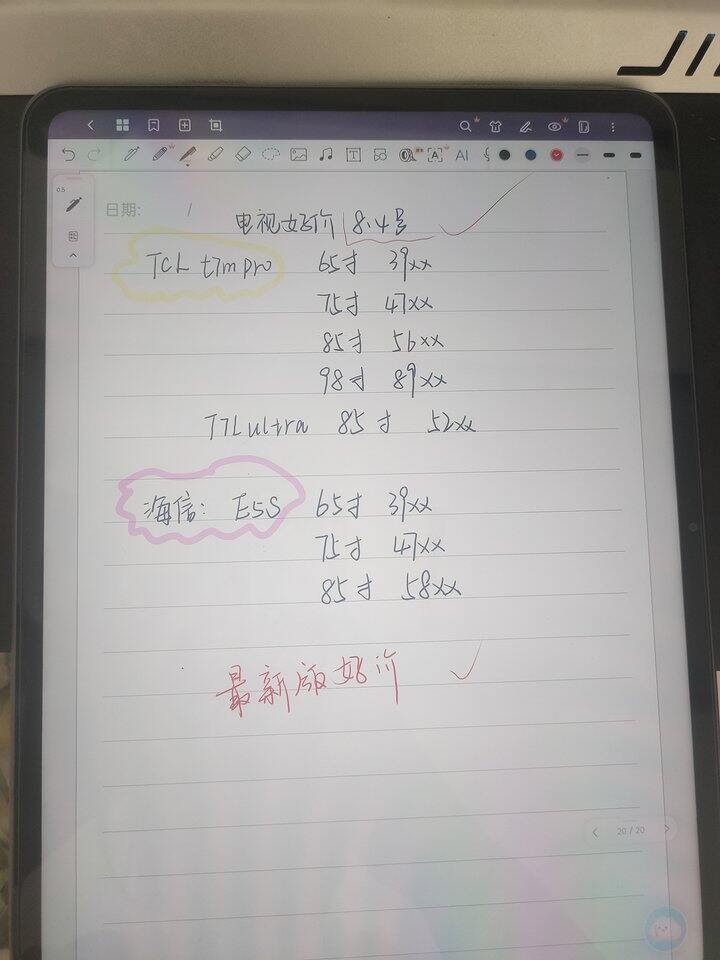 AI
0.5
日期: /
电视好价 8.4号
TCL t7m pro 65寸 39xx
75寸 47xx
85寸 56xx
98寸 89xx
T7L ultra 85寸 52xx
海信: E5S 65寸 39xx
75寸 47xx
85寸 58xx
最新版好价
20 / 20